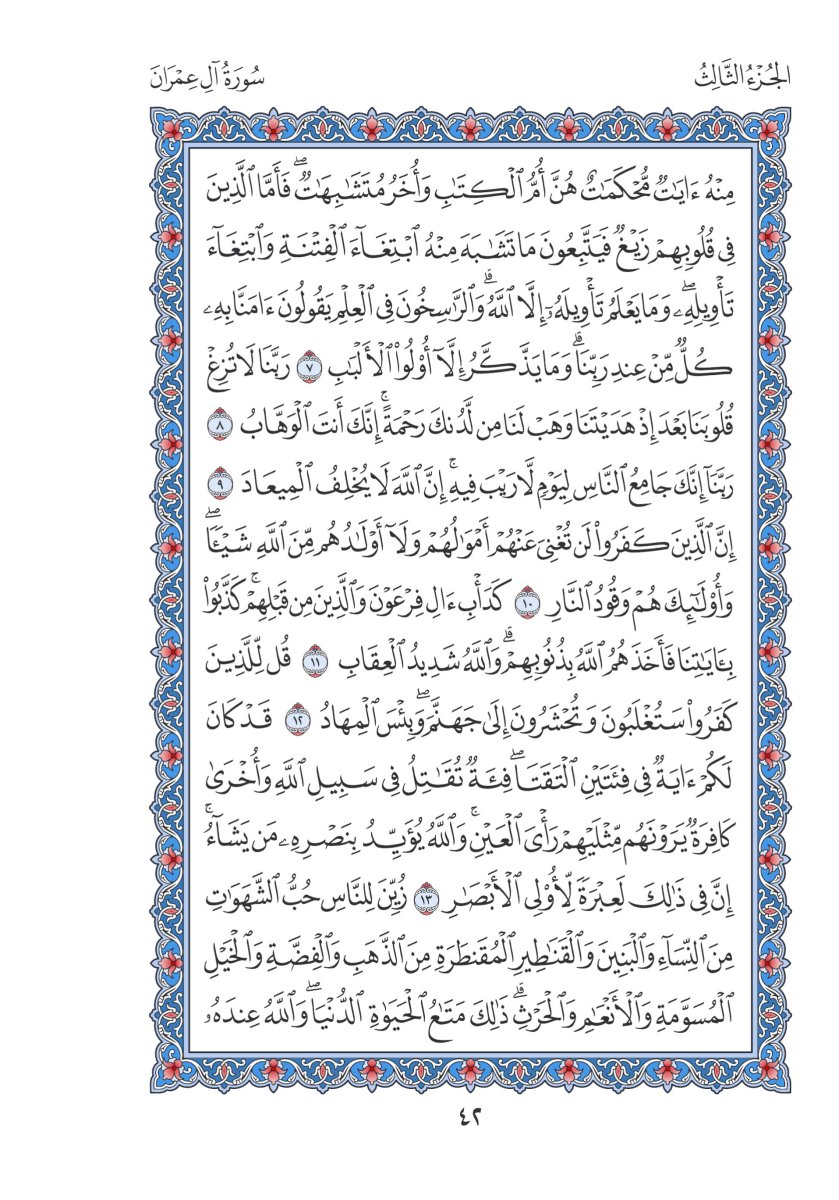 الجُزْءُ الثَّالِثُ
سُورَةُ آلِ عِمْرَانَ
مِنْهُ ءَايَٰتٌ مُّحْكَمَٰتٌ هُنَّ أُمُّ ٱلْكِتَٰبِ وَأُخَرُ مُتَشَٰبِهَٰتٌۖ فَأَمَّا ٱلَّذِينَ
فِى قُلُوبِهِمْ زَيْغٌ فَيَتَّبِعُونَ مَا تَشَٰبَهَ مِنْهُ ٱبْتِغَآءَ ٱلْفِتْنَةِ وَٱبْتِغَآءَ
تَأْوِيلِهِۦۖ وَمَا يَعْلَمُ تَأْوِيلَهُۥٓ إِلَّا ٱللَّهُۗ وَٱلرَّٰسِخُونَ فِى ٱلْعِلْمِ يَقُولُونَ ءَامَنَّا بِهِۦ
كُلٌّ مِّنْ عِندِ رَبِّنَاۗ وَمَا يَذَّكَّرُ إِلَّآ أُو۟لُوا۟ ٱلْأَلْبَٰبِ ٧ رَبَّنَا لَا تُزِغْ
قُلُوبَنَا بَعْدَ إِذْ هَدَيْتَنَا وَهَبْ لَنَا مِن لَّدُنكَ رَحْمَةًۚ إِنَّكَ أَنتَ ٱلْوَهَّابُ ٨
رَبَّنَآ إِنَّكَ جَامِعُ ٱلنَّاسِ لِيَوْمٍ لَّا رَيْبَ فِيهِۚ إِنَّ ٱللَّهَ لَا يُخْلِفُ ٱلْمِيعَادَ ٩
إِنَّ ٱلَّذِينَ كَفَرُوا۟ لَن تُغْنِىَ عَنْهُمْ أَمْوَٰلُهُمْ وَلَآ أَوْلَٰدُهُم مِّنَ ٱللَّهِ شَيْـًٔاۖ
وَأُو۟لَٰٓئِكَ هُمْ وَقُودُ ٱلنَّارِ ١٠ كَدَأْبِ ءَالِ فِرْعَوْنَ وَٱلَّذِينَ مِن قَبْلِهِمْۚ كَذَّبُوا۟
بِـَٔايَٰتِنَا فَأَخَذَهُمُ ٱللَّهُ بِذُنُوبِهِمْۗ وَٱللَّهُ شَدِيدُ ٱلْعِقَابِ ١١ قُل لِّلَّذِينَ
كَفَرُوا۟ سَتُغْلَبُونَ وَتُحْشَرُونَ إِلَىٰ جَهَنَّمَۖ وَبِئْسَ ٱلْمِهَادُ ١٢ قَدْ كَانَ
لَكُمْ ءَايَةٌ فِى فِئَتَيْنِ ٱلْتَقَتَاۖ فِئَةٌ تُقَٰتِلُ فِى سَبِيلِ ٱللَّهِ وَأُخْرَىٰ
كَافِرَةٌ يَرَوْنَهُم مِّثْلَيْهِمْ رَأْىَ ٱلْعَيْنِۚ وَٱللَّهُ يُؤَيِّدُ بِنَصْرِهِۦ مَن يَشَآءُۚ
إِنَّ فِى ذَٰلِكَ لَعِبْرَةً لِّأُو۟لِى ٱلْأَبْصَٰرِ ١٣ زُيِّنَ لِلنَّاسِ حُبُّ ٱلشَّهَوَٰتِ
مِنَ ٱلنِّسَآءِ وَٱلْبَنِينَ وَٱلْقَنَٰطِيرِ ٱلْمُقَنطَرَةِ مِنَ ٱلذَّهَبِ وَٱلْفِضَّةِ وَٱلْخَيْلِ
ٱلْمُسَوَّمَةِ وَٱلْأَنْعَٰمِ وَٱلْحَرْثِۗ ذَٰلِكَ مَتَٰعُ ٱلْحَيَوٰةِ ٱلدُّنْيَاۖ وَٱللَّهُ عِندَهُۥ
٤٢